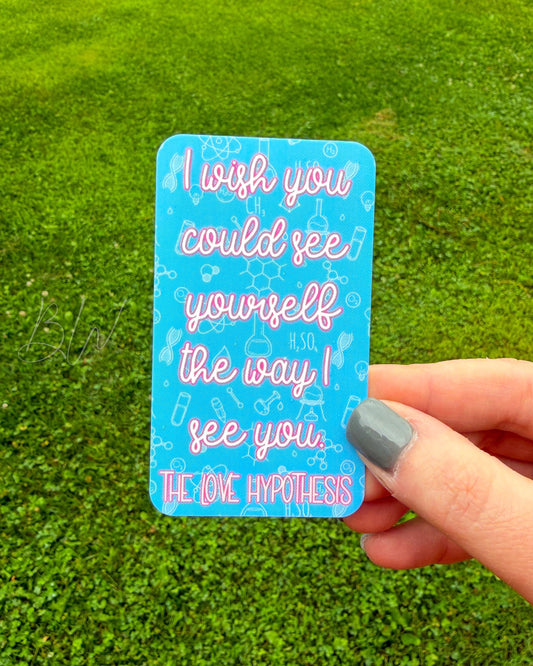 I wish you
could see
yourself
the way I
see you.
THE LOVE HYPOTHESIS
BW
H₂SO₄
CH₃
H₂